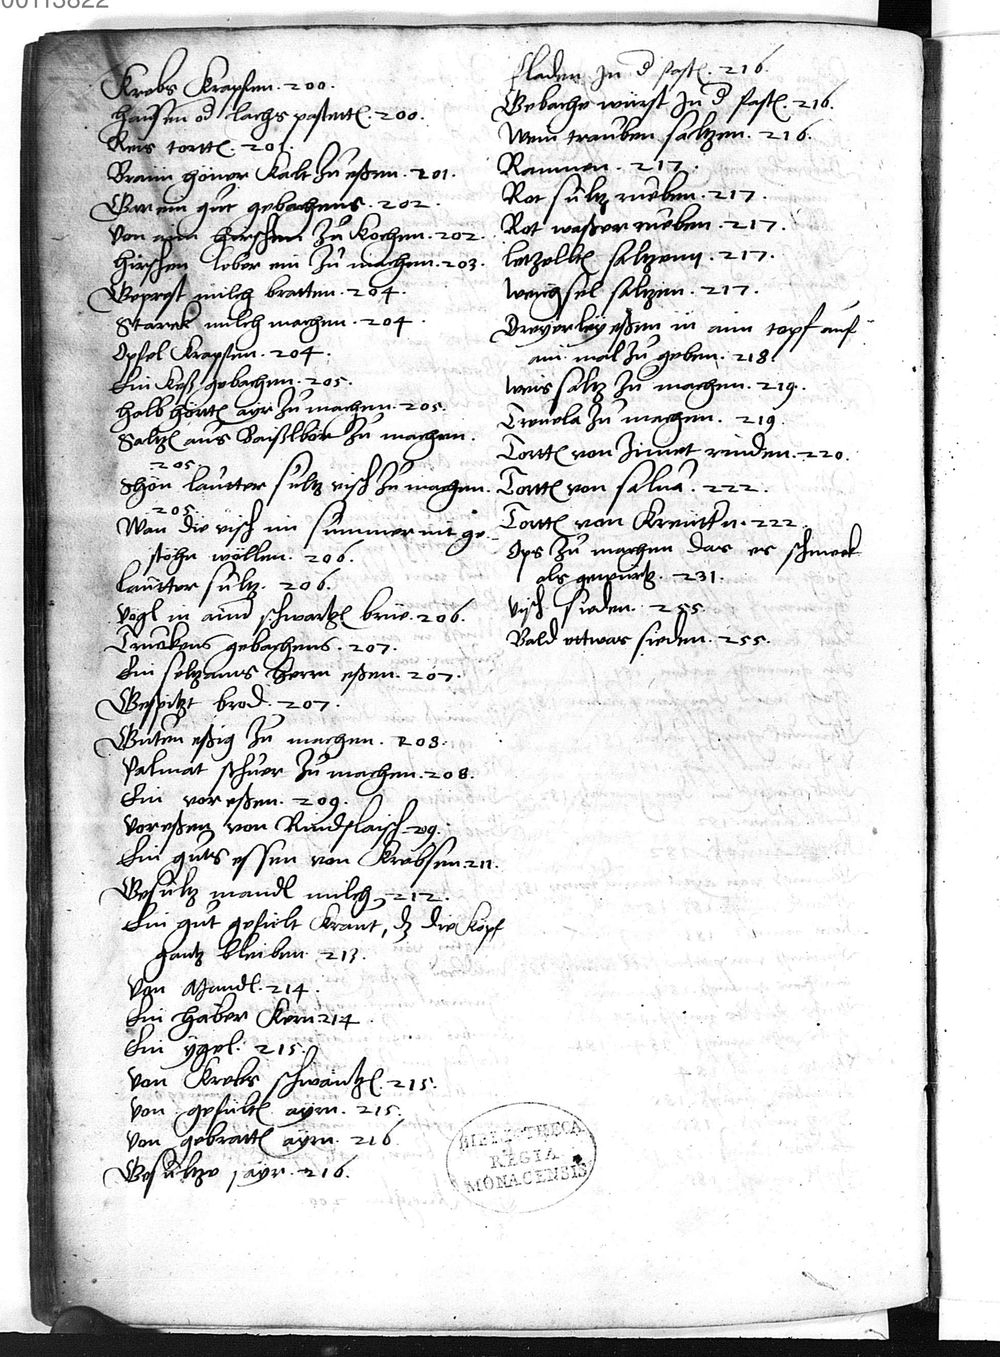 00113822
Krebs Krapffen. 200.
Hausen od lachs pasteten. 200.
Reis torttn. 201.
Braun höner Kalt Zu eßen. 201.
Gar ein gut gebachens. 202.
Von ein hirschen Zu Kochen. 202.
Hirschen leber ein Zu machen. 203.
Geprest milch bratten. 204.
Starck milch machen. 204.
Opfel Krapffen. 204.
Ein Keß gebachen. 205.
Halb hörtt ayr Zu machen. 205.
Saltz aus Zu machen.
205.
Schön lautter sultz visch Zu machen.
205.
Wan die visch im summer nit ge-
stehn wöllen. 206.
Lautter sultz. 206.
Vögl in ainer schwartzn brüe. 206.
Truckens gebachens. 207.
Ein seltzams herrn eßen. 207.
Gespitzt brod. 207.
Guten eßig Zu machen. 208.
Zu machen. 208.
Ein vor eßen. 209.
Voreßen von Rindflaisch. 209.
Ein guts essen von Krebsen. 211.
Gesultz mandl milch. 212.
Ein gut gefült Kraut, dz die Köpf
gantz bleiben. 213.
Von Mandl. 214.
Ein haber Kern 214.
Ein ygel. 215.
Von Krebs schwäntzn. 215.
Von gefültn ayrn. 215.
Von gebrattn ayrn. 216.
Gesultzte ayr. 216.
Fladen In d fastn. 216.
Gebachne würst In d fastn. 216.
Wein trauben saltzen. 216.
Rannen. 217.
Rot sultz rüeben. 217.
Rot waßer rüeben. 217.
217.
Weichsel saltzen. 217.
Dreyerley eßen in aim topf auf
ain mal Zu geben. 218.
Weis saltz Zu machen. 219.
Zu machen. 219.
Torttn von Zimet rinden. 220.
Torttn von salua. 222.
Torttn von Kreuttern. 222.
Ops Zu machen das es schmeck
als gewürtz. 231.
Visch sieden. 255.
Bald ettwas sieden. 255.
BIBLIOTHECA
REGIA
MONACENSIS